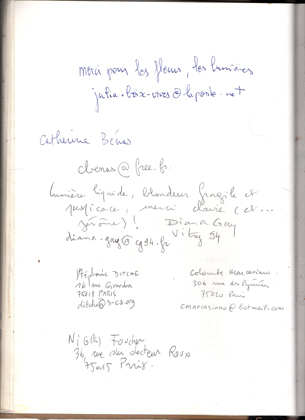 merci pour les fleurs, les lumières
julia.loix-vives@laposte.net
Catherine Bénas
cbenas@free.fr
Lumière liquide, blondeur fragile et
perspicace, merci claire (et...
jérôme)! Diana Gay
Vitry 94
diana.gay@cg94.fr
Stéphanie DITCHE
16 rue Girardon
75018 PARIS
Colombe Marcasiano
306 rue des Pyrénées
75020 Paris
cmarcasiano@hotmail.com
Nicolas Foucher
36, rue du docteur Roux
75015 Paris.